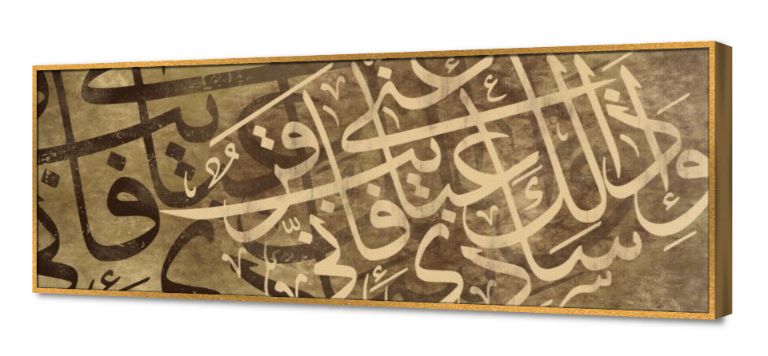 وَإِذَا سَأَلَكَ عِبَادِي عَنِّي فَإِنِّي قَرِيبٌ